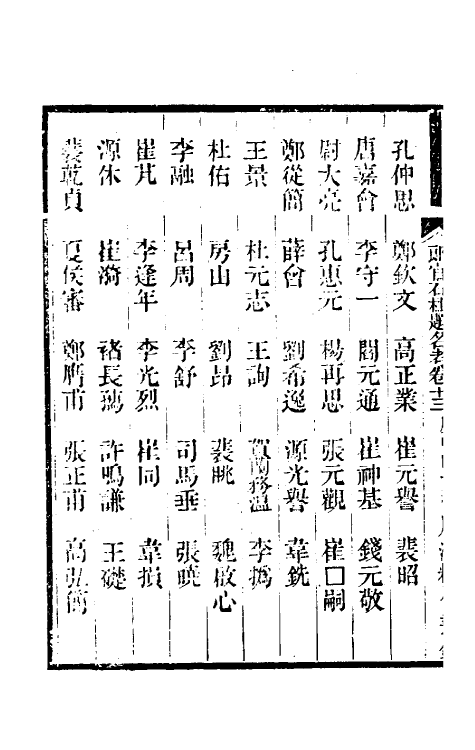 郎官石柱題名考卷十三
孔仲思　鄭欽文　高正業　崔元譽　裴昭
唐嘉會　李守一　閻元通　崔神基　錢元敬
尉大亮　孔惠元　楊再思　張元觀　崔□嗣
鄭從簡　薛會　劉希逸　源光譽　韋銑
王景　杜元志　王詢　賀蘭務溫　李撝
杜佑　房山　劉昂　裴眺　魏啟心
李融　呂周　李舒　司馬垂　張曉
崔芃　李逢年　李光烈　崔同　韋損
源休　崔漪　褚長孺　許鳴謙　王礎
裴乾貞　夏侯審　鄭膺甫　張正甫　高弘簡